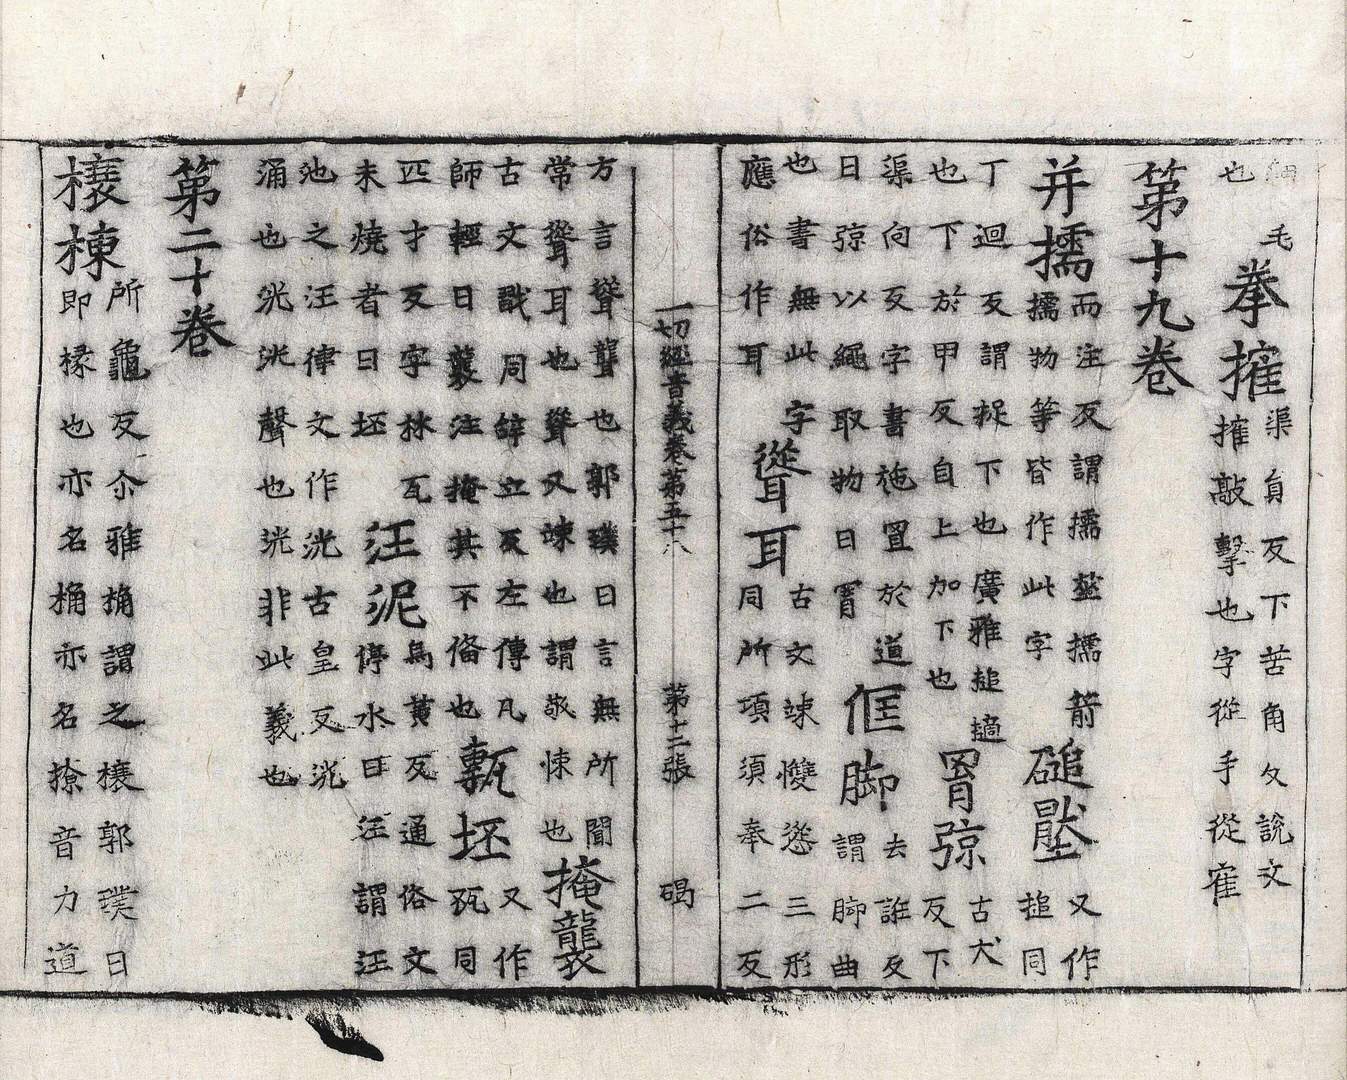 細毛
也 拳摧 渠員反下苦角攵說文
摧敲擊也字從手從隺
第十九卷
并擩 而注反謂擩莚擩箭
擩物等皆作此字 磓壓 又作
搥同
丁迴反謂捉下也廣雅搥擿
也下於甲反自上加下也 罥弶 古犬
反下
渠向反字書施罥於道
曰弶以繩取物曰罥 𠊎脚 去誑反
謂脚曲
也書無此字
應俗作耳 聳耳 古文竦㩳慫三形
同所項須奉二反
方言聳聾也郭璞曰言無所聞
常聳耳也聳又竦也謂敬悚也 掩襲
古文戠同辞立反左傳凡
師輕曰襲注掩其不俻也 㼾坯 又作
㼧同
匹才反字林瓦
未燒者曰坯 汪泥 烏黃反通俗文
停水曰汪謂汪
池之汪律文作洸古皇反洸
涌也洸洸聲也洸非此義也
第二十卷
榱棟 所龜反尒雅桷謂之榱郭璞曰
即椽也亦名桷亦名橑音力道
一切經音義卷第五十八 第十二張 碣